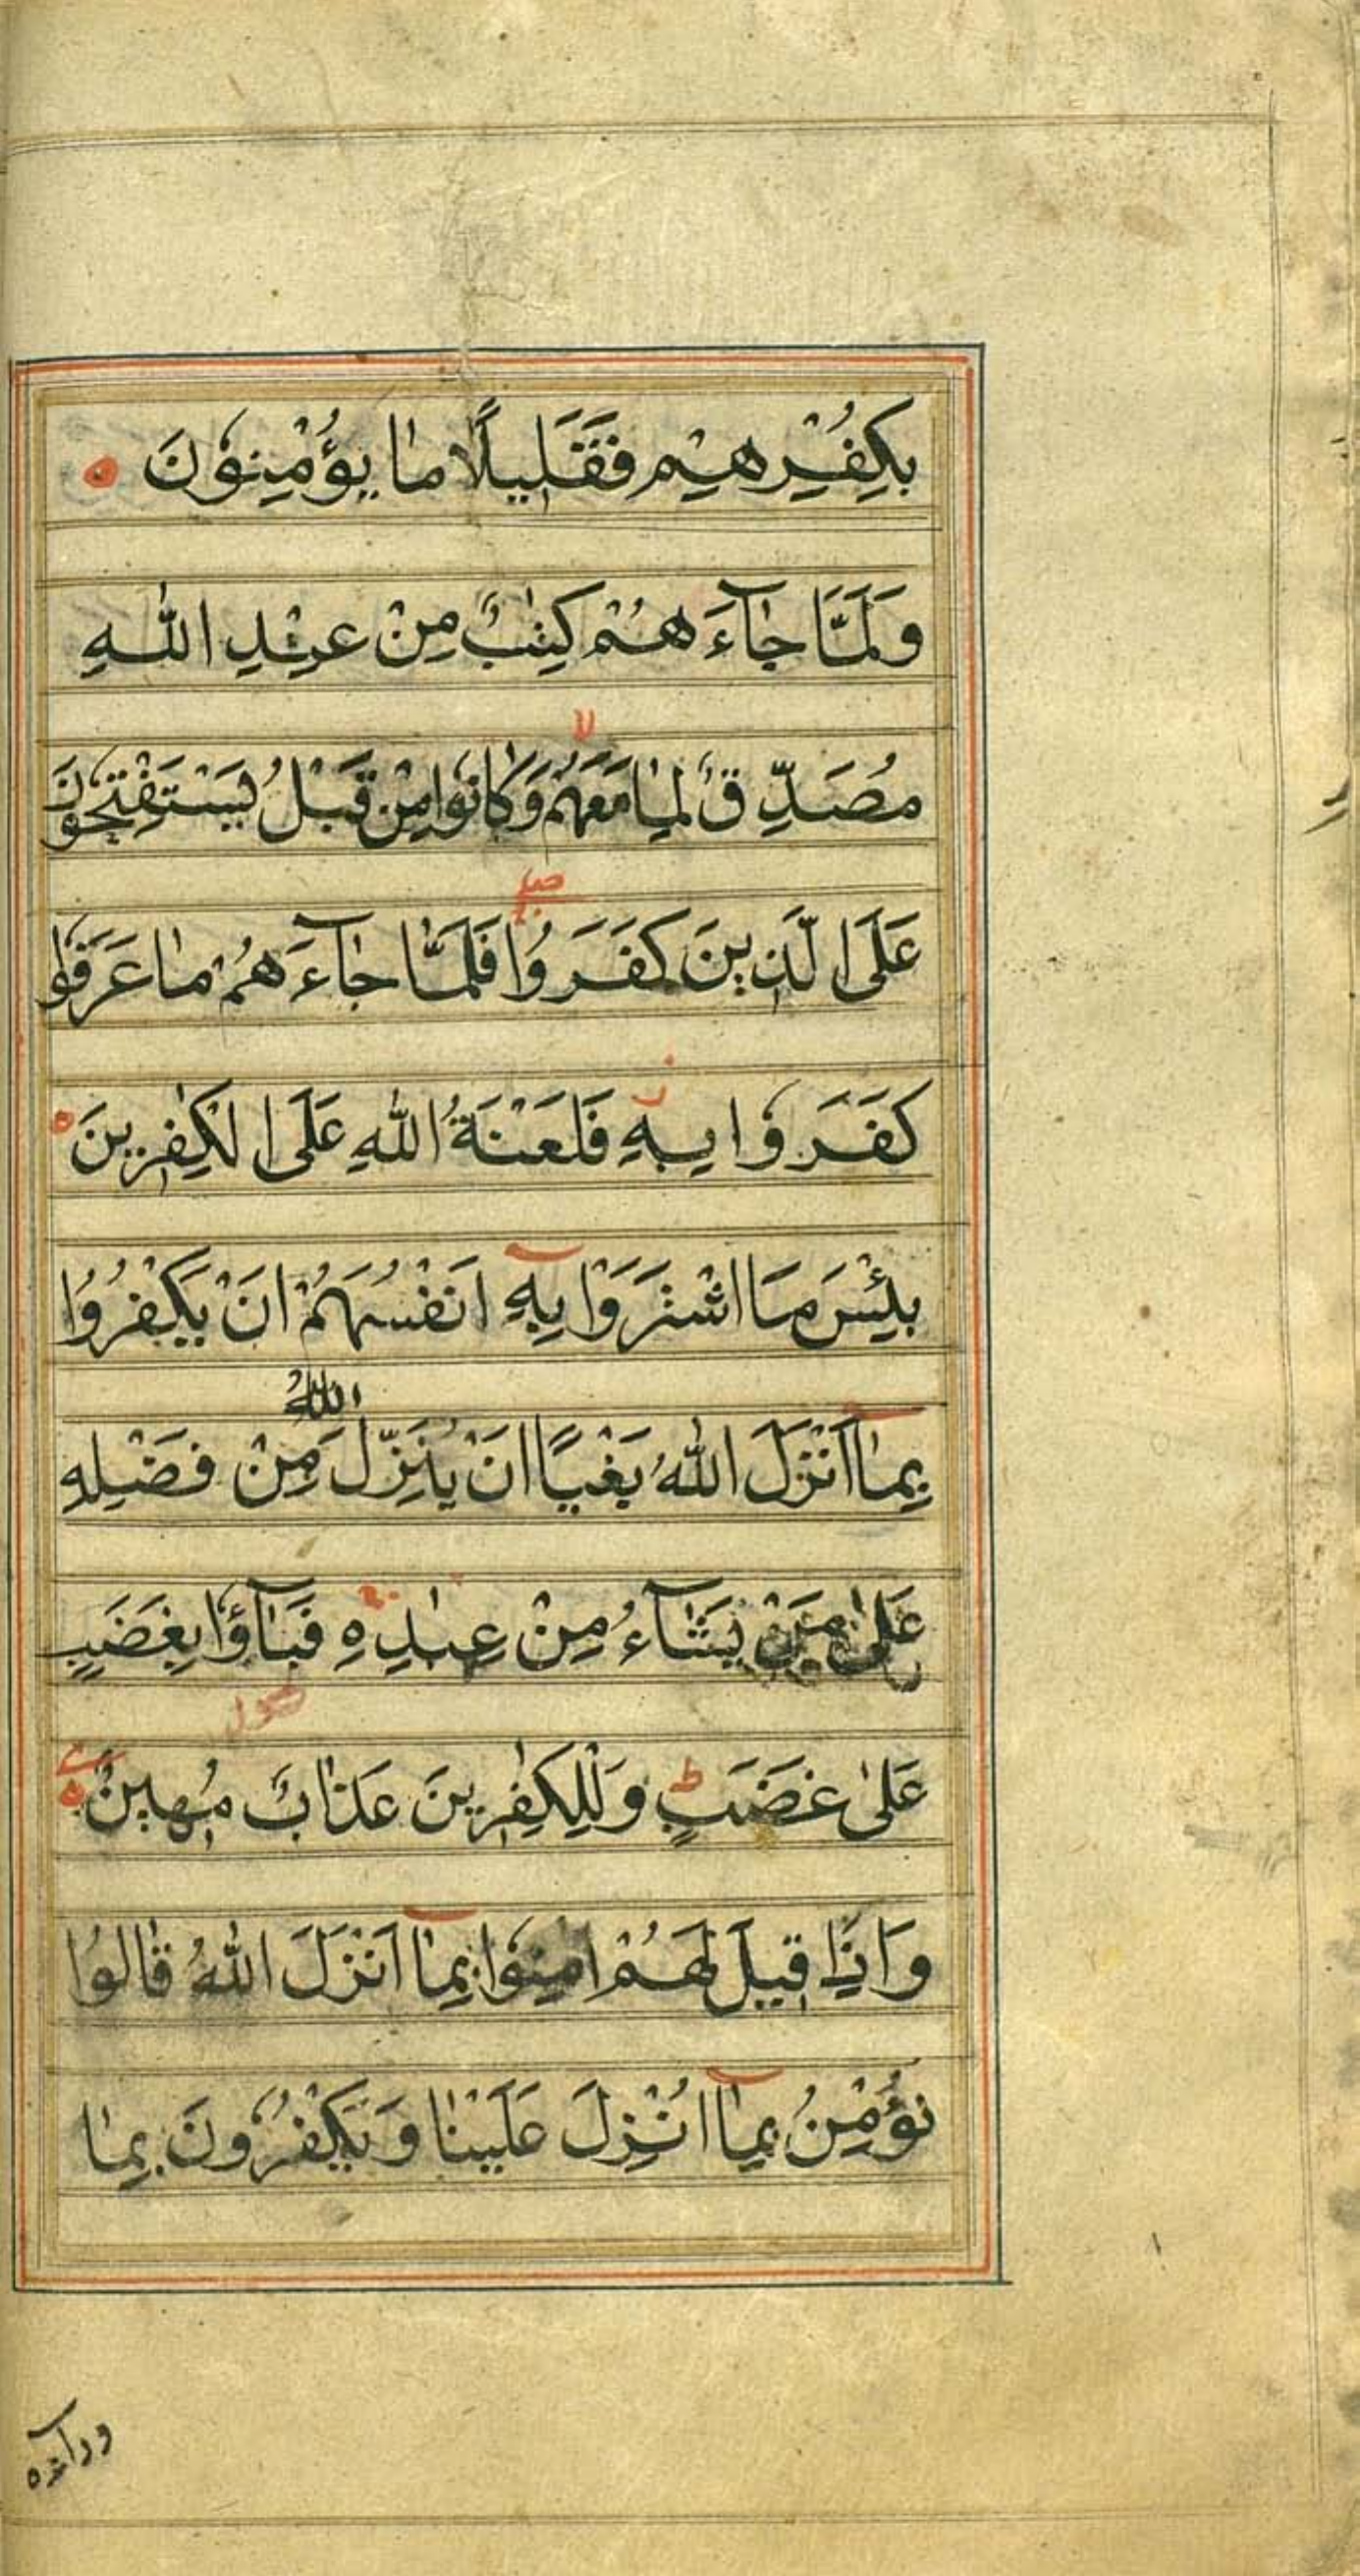 بِكُفْرِهِمْ فَقَلِيلًا مَا يُؤْمِنُونَ ه
وَلَمَّا جَآءَ هُمْ كِتٰبٌ مِنْ عِنْدِ اللّٰهِ
مُصَدِّقٌ لِمَا مَعَهُمْ وَكَانُوا مِنْ قَبْلُ يَسْتَفْتِحُونَ لا
عَلَى الَّذِينَ كَفَرُوا صلے فَلَمَّا جَآءَ هُمْ مَا عَرَفُوا
كَفَرُوا بِهٖ فَلَعْنَةُ اللّٰهِ عَلَى الْكٰفِرِينَ ه
بِئْسَ مَا اشْتَرَوْا بِهٖ اَنْفُسَهُمْ اَنْ يَكْفُرُوا
بِمَآ اَنْزَلَ اللّٰهُ بَغْيًا اَنْ يُنَزِّلَ اللّٰهُ مِنْ فَضْلِهٖ
عَلٰى مَنْ يَشَآءُ مِنْ عِبَادِهٖ فَبَآؤُا بِغَضَبٍ
عَلٰى غَضَبٍ ط وَلِلْكٰفِرِينَ عَذَابٌ مُهِينٌ ه
وَاِذَا قِيلَ لَهُمْ اٰمِنُوا بِمَآ اَنْزَلَ اللّٰهُ قَالُوا
نُؤْمِنُ بِمَآ اُنْزِلَ عَلَيْنَا وَيَكْفُرُونَ بِمَا
ورآءه